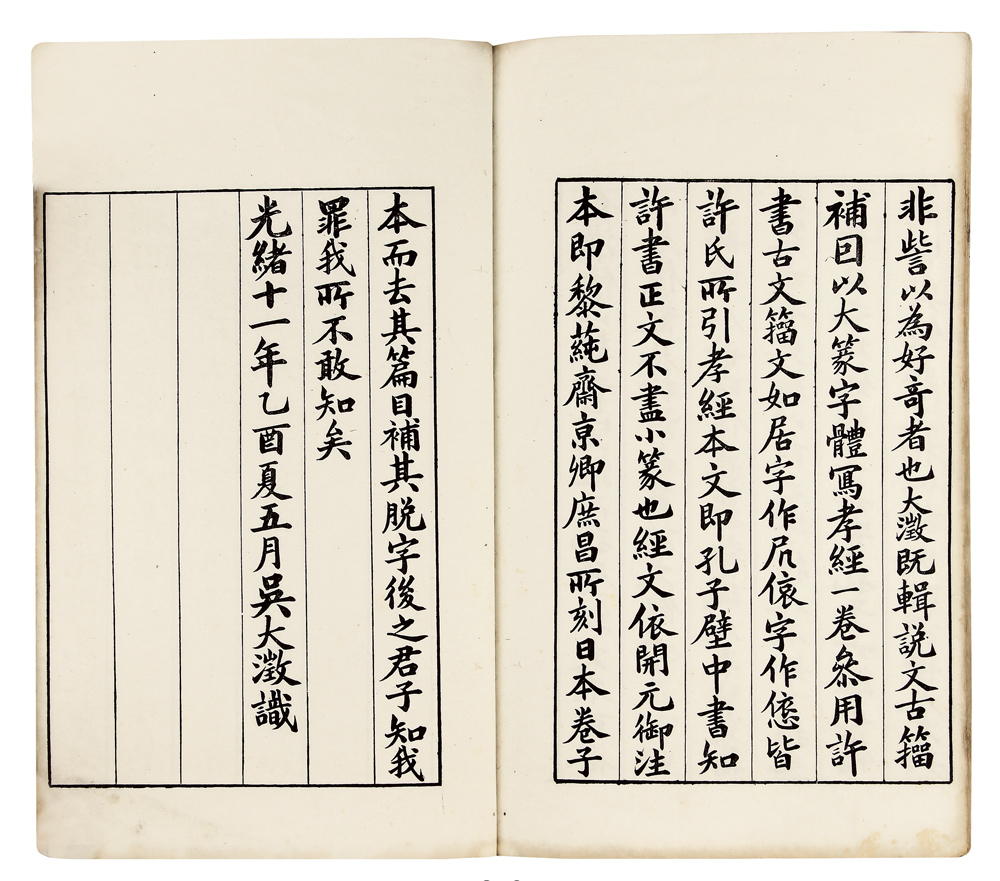 非訾以為好奇者也大澂既輯説文古籀
補因以大篆字體寫孝經一卷叅用許
書古文籀文如居字作凥偯字作㥋皆
許氏所引孝經本文即孔子壁中書知
許書正文不盡小篆也經文依開元御注
本即黎蒓齋京卿庶昌所刻日本卷子
本而去其篇目補其脱字後之君子知我
罪我所不敢知矣
光緒十一年乙酉夏五月吳大澂識